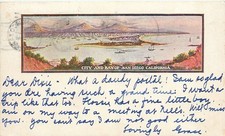 CITY AND BAY OF SAN DIEGO CALIFORNIA.
Dear Dixie – What a dandy postal! I am so glad
you are having such a grand time! I want a
trip like that too. Flossie has a fine little boy.
Am on my way to a meeting at Nell's. Will miss
you. You can't say I am not good either
Lovingly Grace